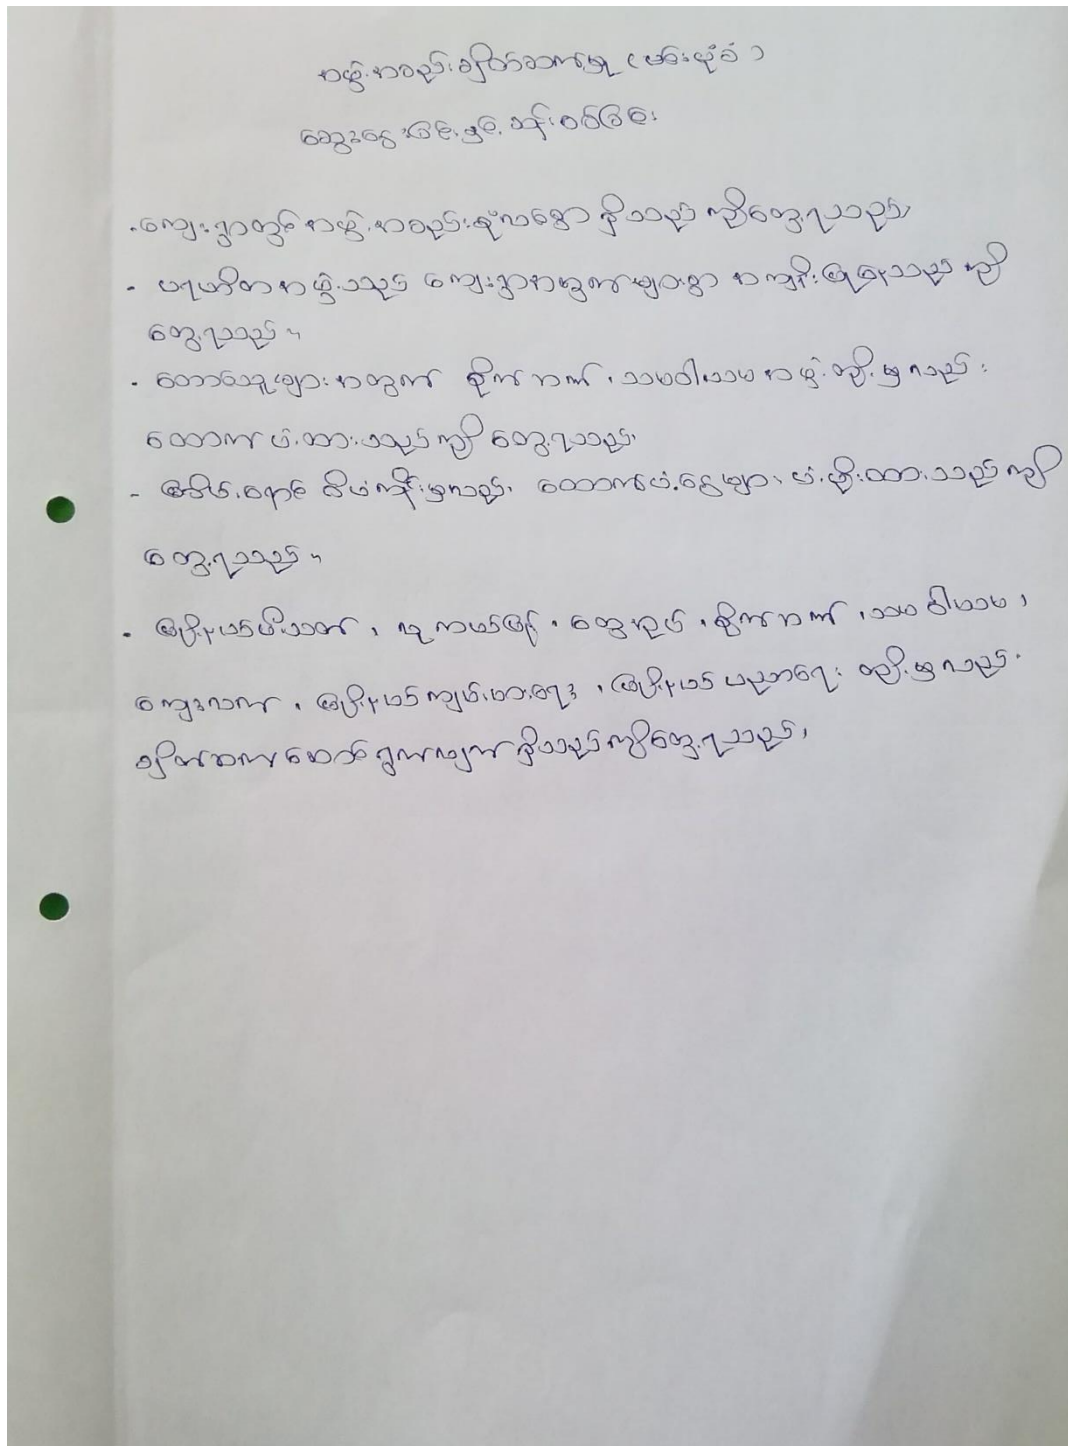 အဖွဲ့အစည်းချိတ်ဆက်မှု (မန်းယုံခံ)
ဆွေးနွေးခြင်းနှင့် သန်းစစ်ခြင်း
• ကျေးရွာတွင် အဖွဲ့အစည်းစုံလင်စွာ ရှိသည်ကို တွေ့ရသည်၊
- ပရဟိတအဖွဲ့သည် ကျေးရွာအတွက်များစွာ အကျိုးပြုသည်ကို
တွေ့ရသည်။
- တောင်သူများအတွက် စိုက်ဘဏ်၊ သမဝါယမအဖွဲ့တို့မှလည်း
ထောက်ပံ့ထားသည်ကို တွေ့ရသည်၊
- မြစိမ်းရောင် စီမံကိန်းမှလည်း ထောက်ပံ့ငွေများ ပံ့ပိုးထားသည်ကို
တွေ့ရသည်။
• မြို့နယ်မီးသတ်၊ လူကယ်ပြန်၊ ထွေအုပ်၊ စိုက်ဘဏ်၊ သမဝါယမ၊
ကျေးလက်၊ မြို့နယ်ကျန်းမာရေး၊ မြို့နယ်ပညာရေး တို့မှလည်း
ချိတ်ဆက်ဆောင်ရွက်လျက်ရှိသည်ကိုတွေ့ရသည်၊